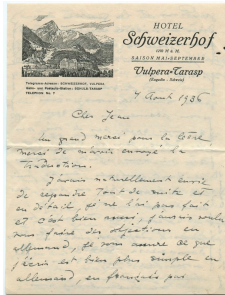 HOTEL
Schweizerhof
SAISON MAI-SEPTEMBER
Vulpera-Tarasp
(Engadin - Schweiz)
Telegramm-Adresse: SCHWEIZERHOF, VULPERA
Bahn- und Poststation: SCHULS-TARASP
TELEPHON No. 7
4 Août 1936
Cher Jean
Un grand merci pour ta lettre
merci de m'avoir envoyé la
traduction.
J'avais naturellement envie
de répondre tout de suite et
en détail, je ne l'ai pas fait
et c'est bien aussi, j'aurais voulu
vous faire des objections en
allemand, je vous assure ce que
j'écris est bien plus simple en
allemand, en français pas